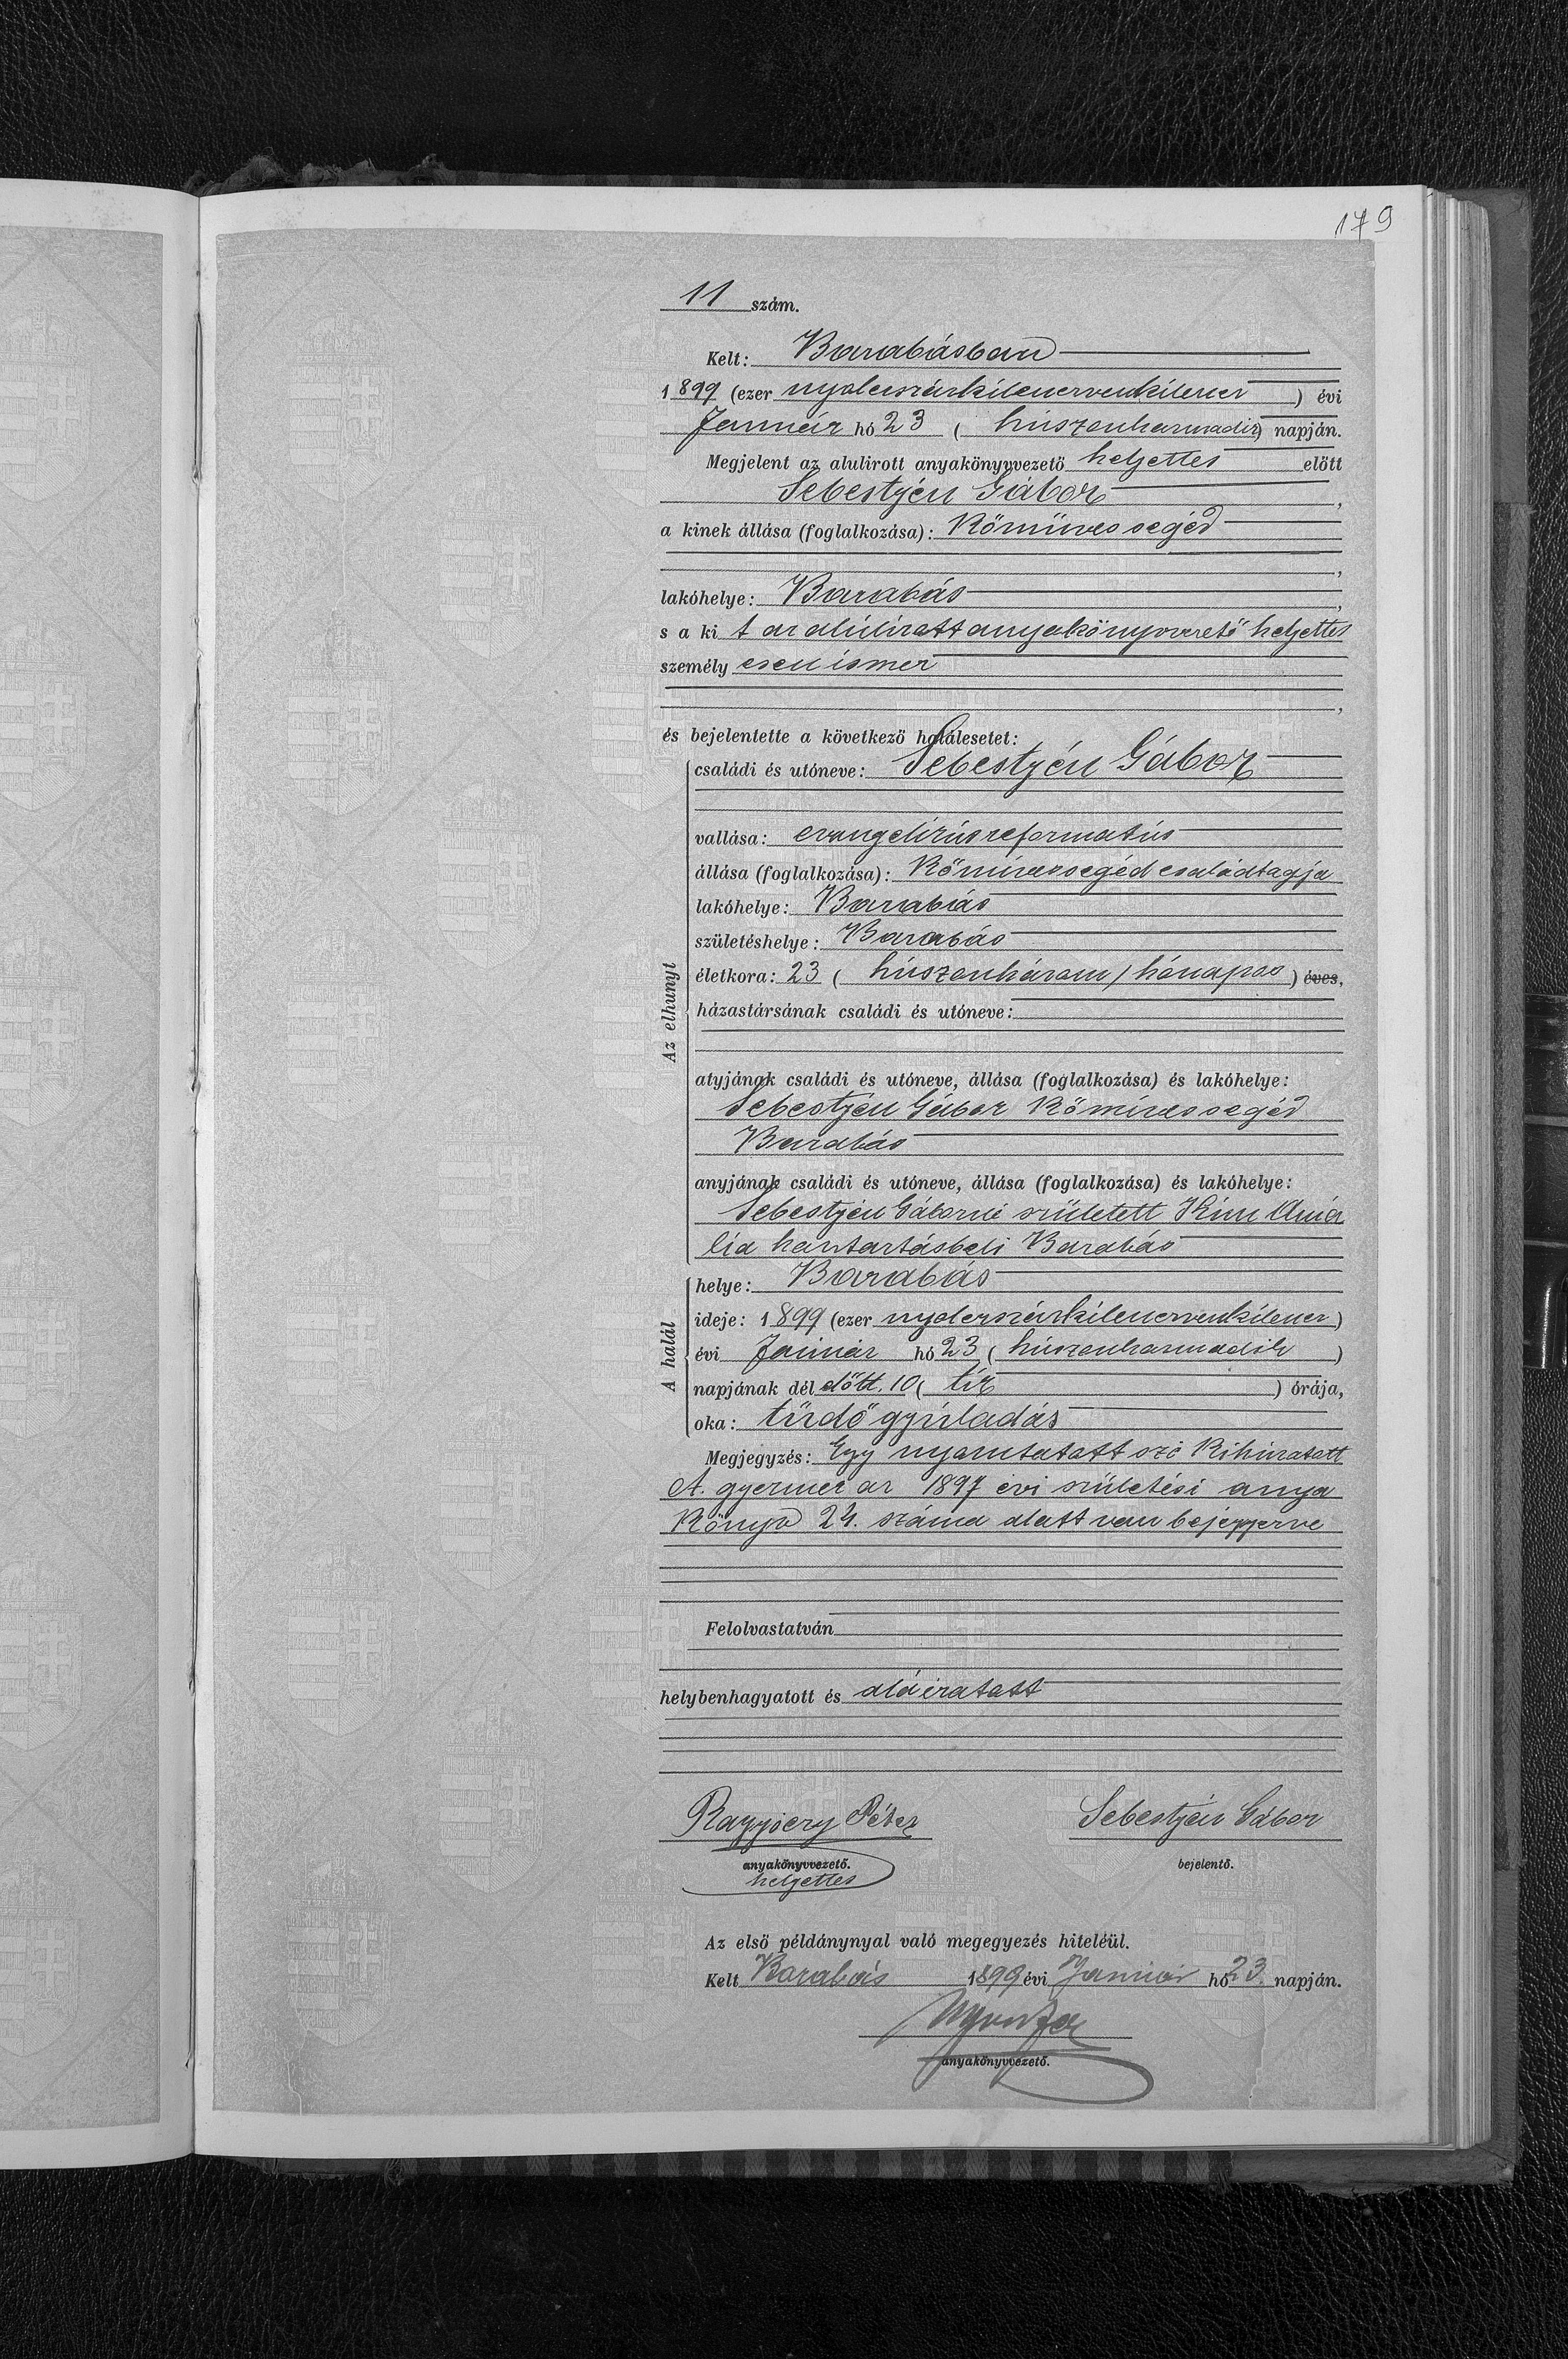 179
11 szám.
Kelt: Barabásban
1899 (ezer nyolczszázkilenczvenkilencz) évi
Január hó 23 (húszonharmadik) napján.
Megjelent az alulirott anyakönyvvezető helyettes előtt
Sebestyén Gábor,
a kinek állása (foglalkozása): Kőmüves segéd
,
lakóhelye: Barabás,
s a kit az alúlirott anyakönyvvezető helyettes
személyesen ismer
,
és bejelentette a következő halálesetet:
Az elhunyt
családi és utóneve: Sebestyén Gábor
vallása: evangelizús reformatús
állása (foglalkozása): Kőmíves segéd családtagja
lakóhelye: Barabás
születéshelye: Barabás
életkora: 23 (húszonhárom) hónapos) éves,
házastársának családi és utóneve:
atyjának családi és utóneve, állása (foglalkozása) és lakóhelye:
Sebestyén Gábor Kőmíves segéd
Barabás
anyjának családi és utóneve, állása (foglalkozása) és lakóhelye:
Sebestyén Gáborné született Amá
lia háztartásbeli Barabás
A halál
helye: Barabás
ideje: 1899 (ezer nyolczszázkilenczvenkilencz)
évi Január hó 23 (húszonharmadik)
napjának dél előtt. 10 (tíz) órája,
oka: tüdő gyúladás
Megjegyzés: Egy nyomtatott szó Kihúzatott
A. gyermek az 1897 évi születési anya
Könyv 24. száma alatt van bejegyezve
Felolvastatván
helybenhagyatott és aláiratott
Péter Sebestyén Gábor
anyakönyvvezető. bejelentő.
helyettes
Az első példánynyal való megegyezés hiteléül.
Kelt Barabás 1899 évi Január hó 23. napján.
anyakönyvvezető.